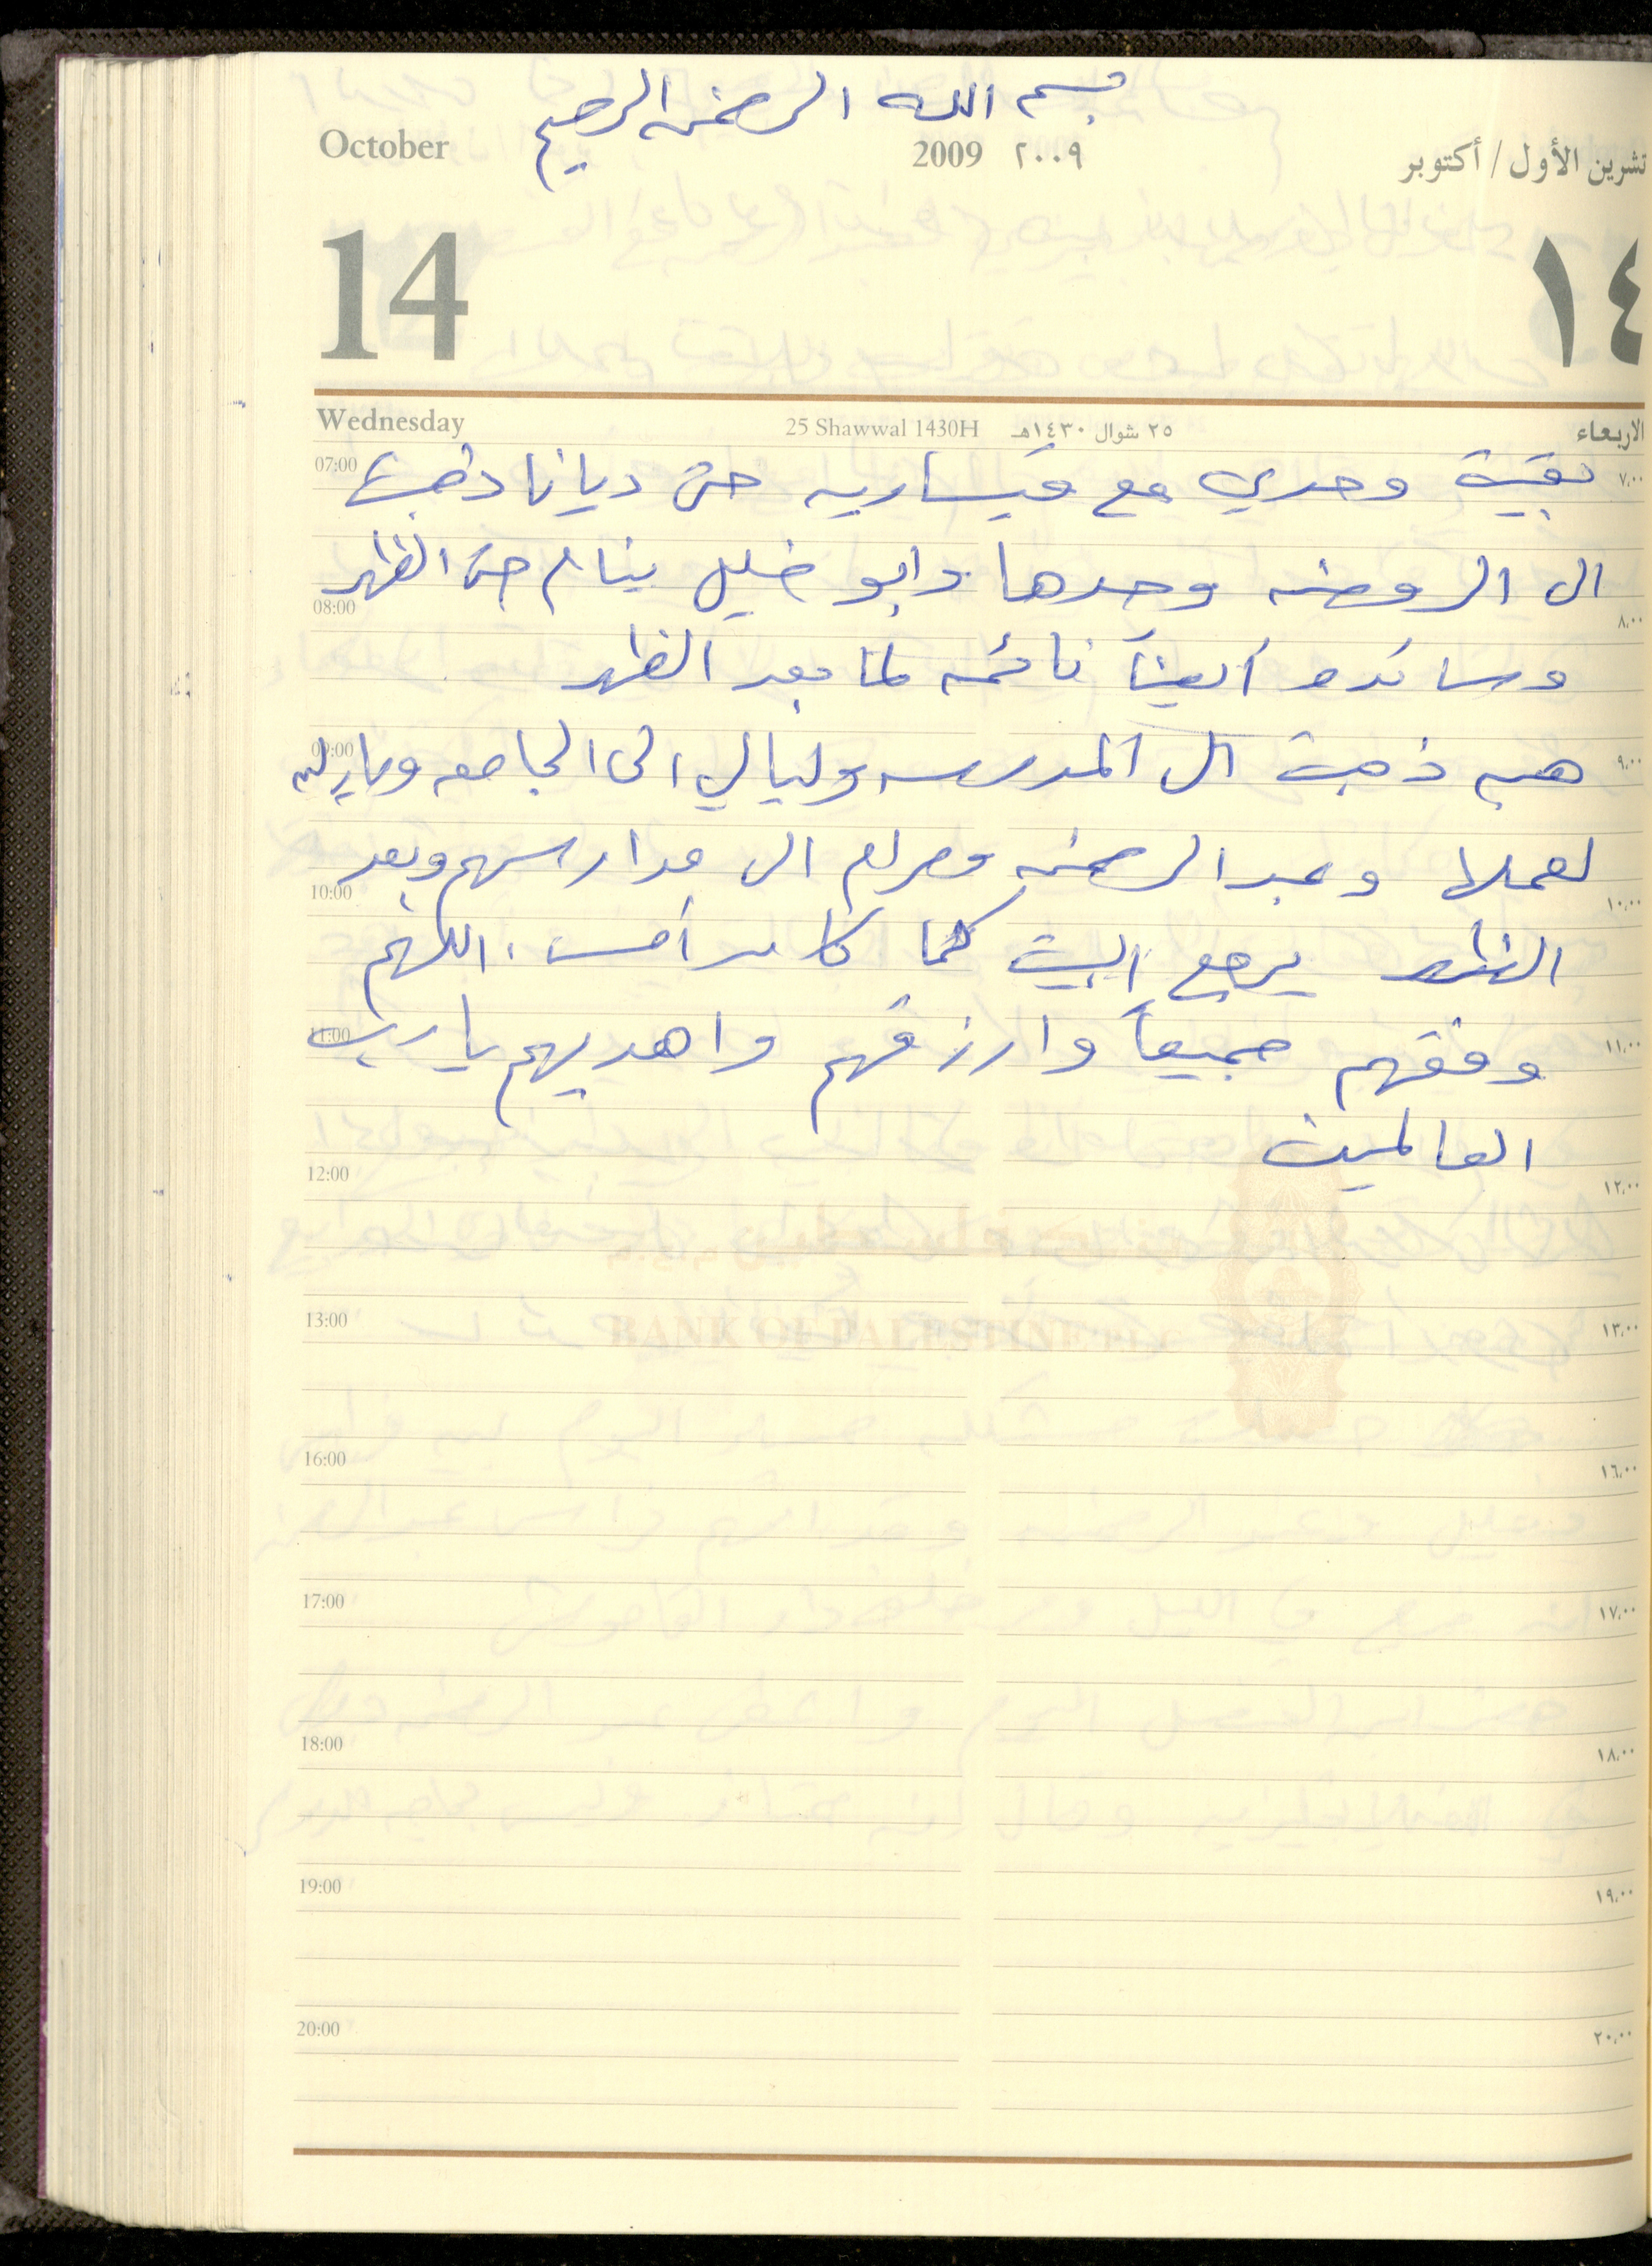 بسم الله الرحمن الرحيم
October 2009 ٢٠٠٩ تشرين الأول / أكتوبر
14 ١٤
Wednesday 25 Shawwal 1430H ٢٥ شوال ١٤٣٠هـ الاربعاء
07:00 بقيت وحدي مع قيساريه حتى ديانا ذهبت ٧،٠٠
الى الروضه وحدها وابو خليل ينام حتى الظهر
08:00 ٨،٠٠
وساندرا أيضاً نائمه لما بعد الظهر
09:00 هبه ذهبت الى المدرسه وليالي الى الجامعه ٩،٠٠
لعملها وعبد الرحمن ومرام الى مدارسهم وبعد
10:00 ١٠،٠٠
الظهر يرجع البيت كما كان أمس . اللهم
11:00 وفقهم جميعاً وارزقهم واهديهم يا رب ١١،٠٠
العالمين
12:00 ١٢،٠٠
BANK OF PALESTINE PLC
13:00 ١٣،٠٠
16:00 ١٦،٠٠
17:00 ١٧،٠٠
18:00 ١٨،٠٠
19:00 ١٩،٠٠
20:00 ٢٠،٠٠